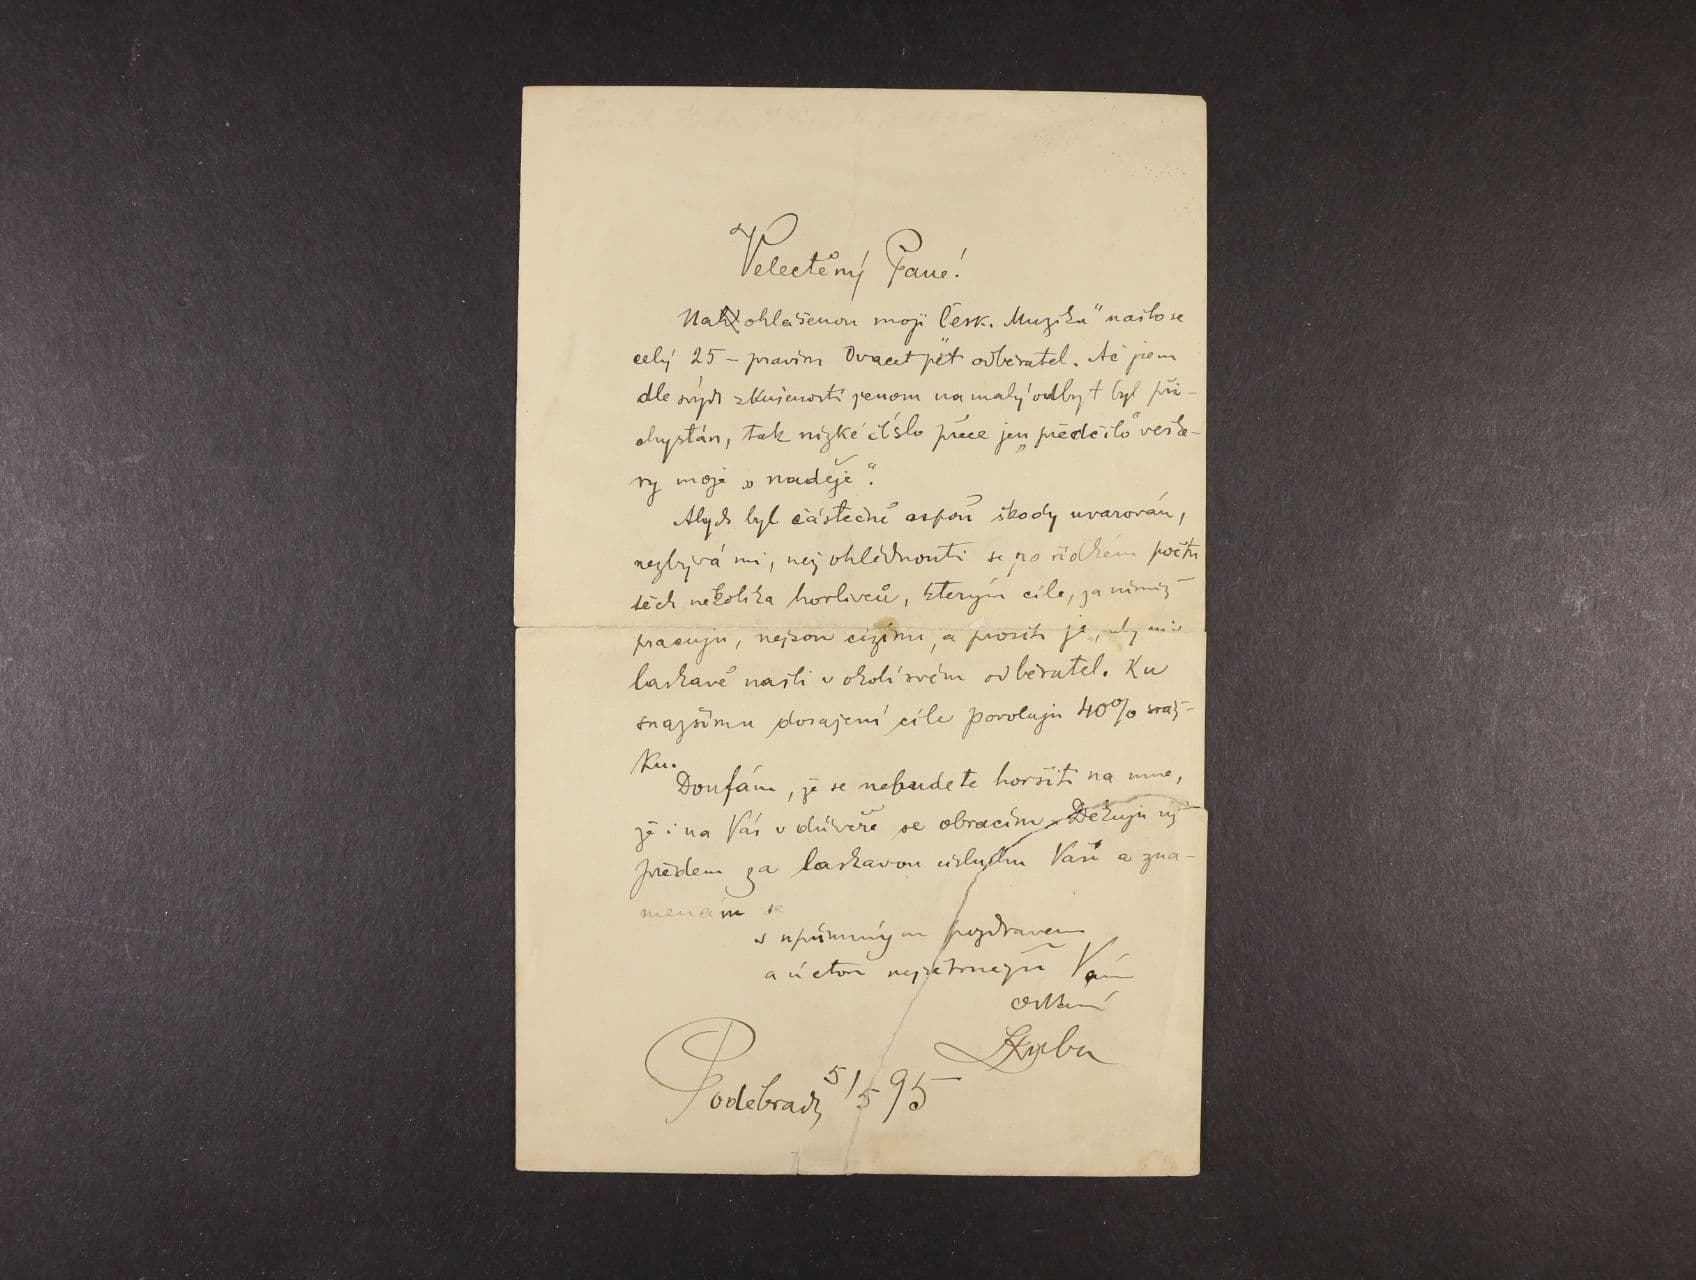 Velectěný Pane!
Na ohlášenou moji Česk. Muziku" našlo se
celý 25 – pravím Dvacet pět odběratel. Ač jsem
dle svých zkušeností jenom na malý odbyt byl při-
chystán, tak nízké číslo přece jen „předčilo" veške-
ry moje „naděje".
Abych byl částečně aspoň škody uvarován,
nezbývá mi, než ohlédnouti se po řídkém počtu
těch několika horlivců, kterým cíle, za nimiž
pracuju, nejsou cizími, a prositi je, aby mi
laskavě našli v okolí svém odběratel. Ku
snazšímu dosažení cíle povoluju 40% sráž-
ku.
Doufám, že se nebudete horšiti na mne,
že i na Vás v důvěře se obracím. Děkuju už
předem za laskavou úsluhu Vaši a zna-
menám se
s upřímným pozdravem
a úctou nejšetrnější Vám
oddaný
LKuba
Poděbrady 5/5 95